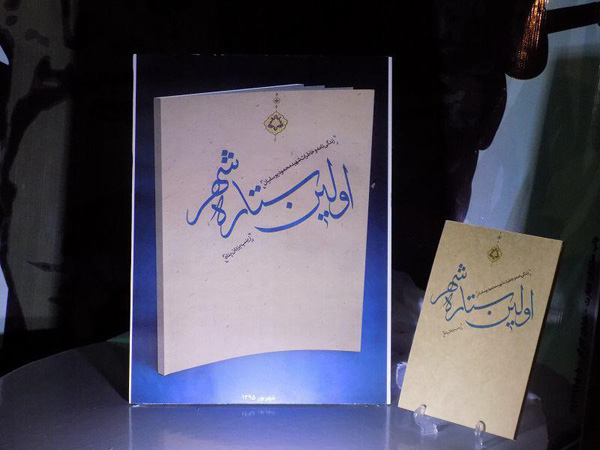 زندگی نامه و خاطرات شهید محمود یوسفیان
اولین ستاره شهر
شهریور ۱۳۹۵
زندگی نامه و خاطرات شهید محمود یوسفیان
اولین ستاره شهر